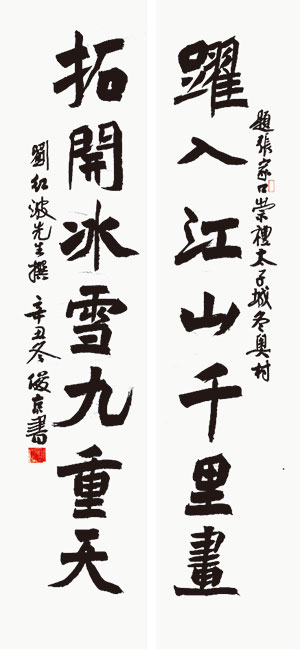 題張家口崇禮太子城冬奧村
躍入江山千里畫
拓開冰雪九重天
劉紅波先生撰 辛丑冬 俊京書